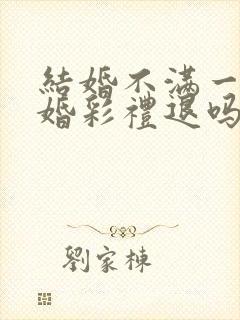 結婚不滿一
婚彩禮退吗
劉家棟